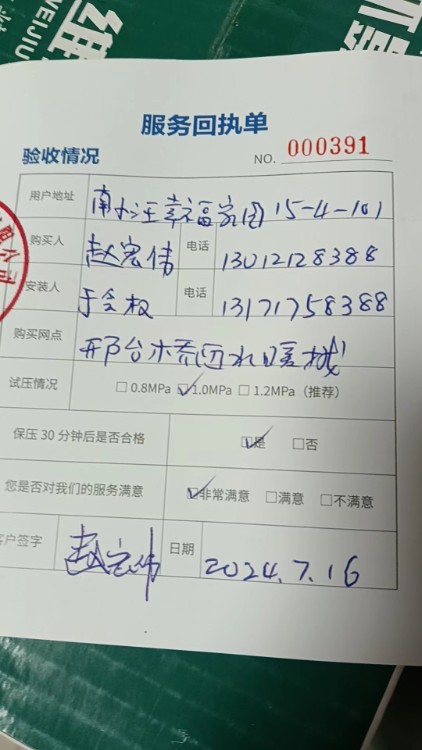 服务回执单
验收情况 NO. 000391
用户地址 南小汪幸福家园15-4-101
购买人 赵宏伟 电话 13012128388
安装人 于会权 电话 13171758388
购买网点 邢台水暖城
试压情况 □0.8MPa ☑1.0MPa □1.2MPa（推荐）
保压30分钟后是否合格 ☑是 □否
您是否对我们的服务满意 ☑非常满意 □满意 □不满意
客户签字 赵宏伟 日期 2024.7.16